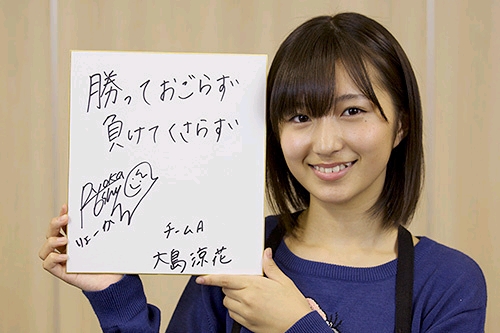 勝っておごらず
負けてくさらず
りょーか
チームA
大島涼花